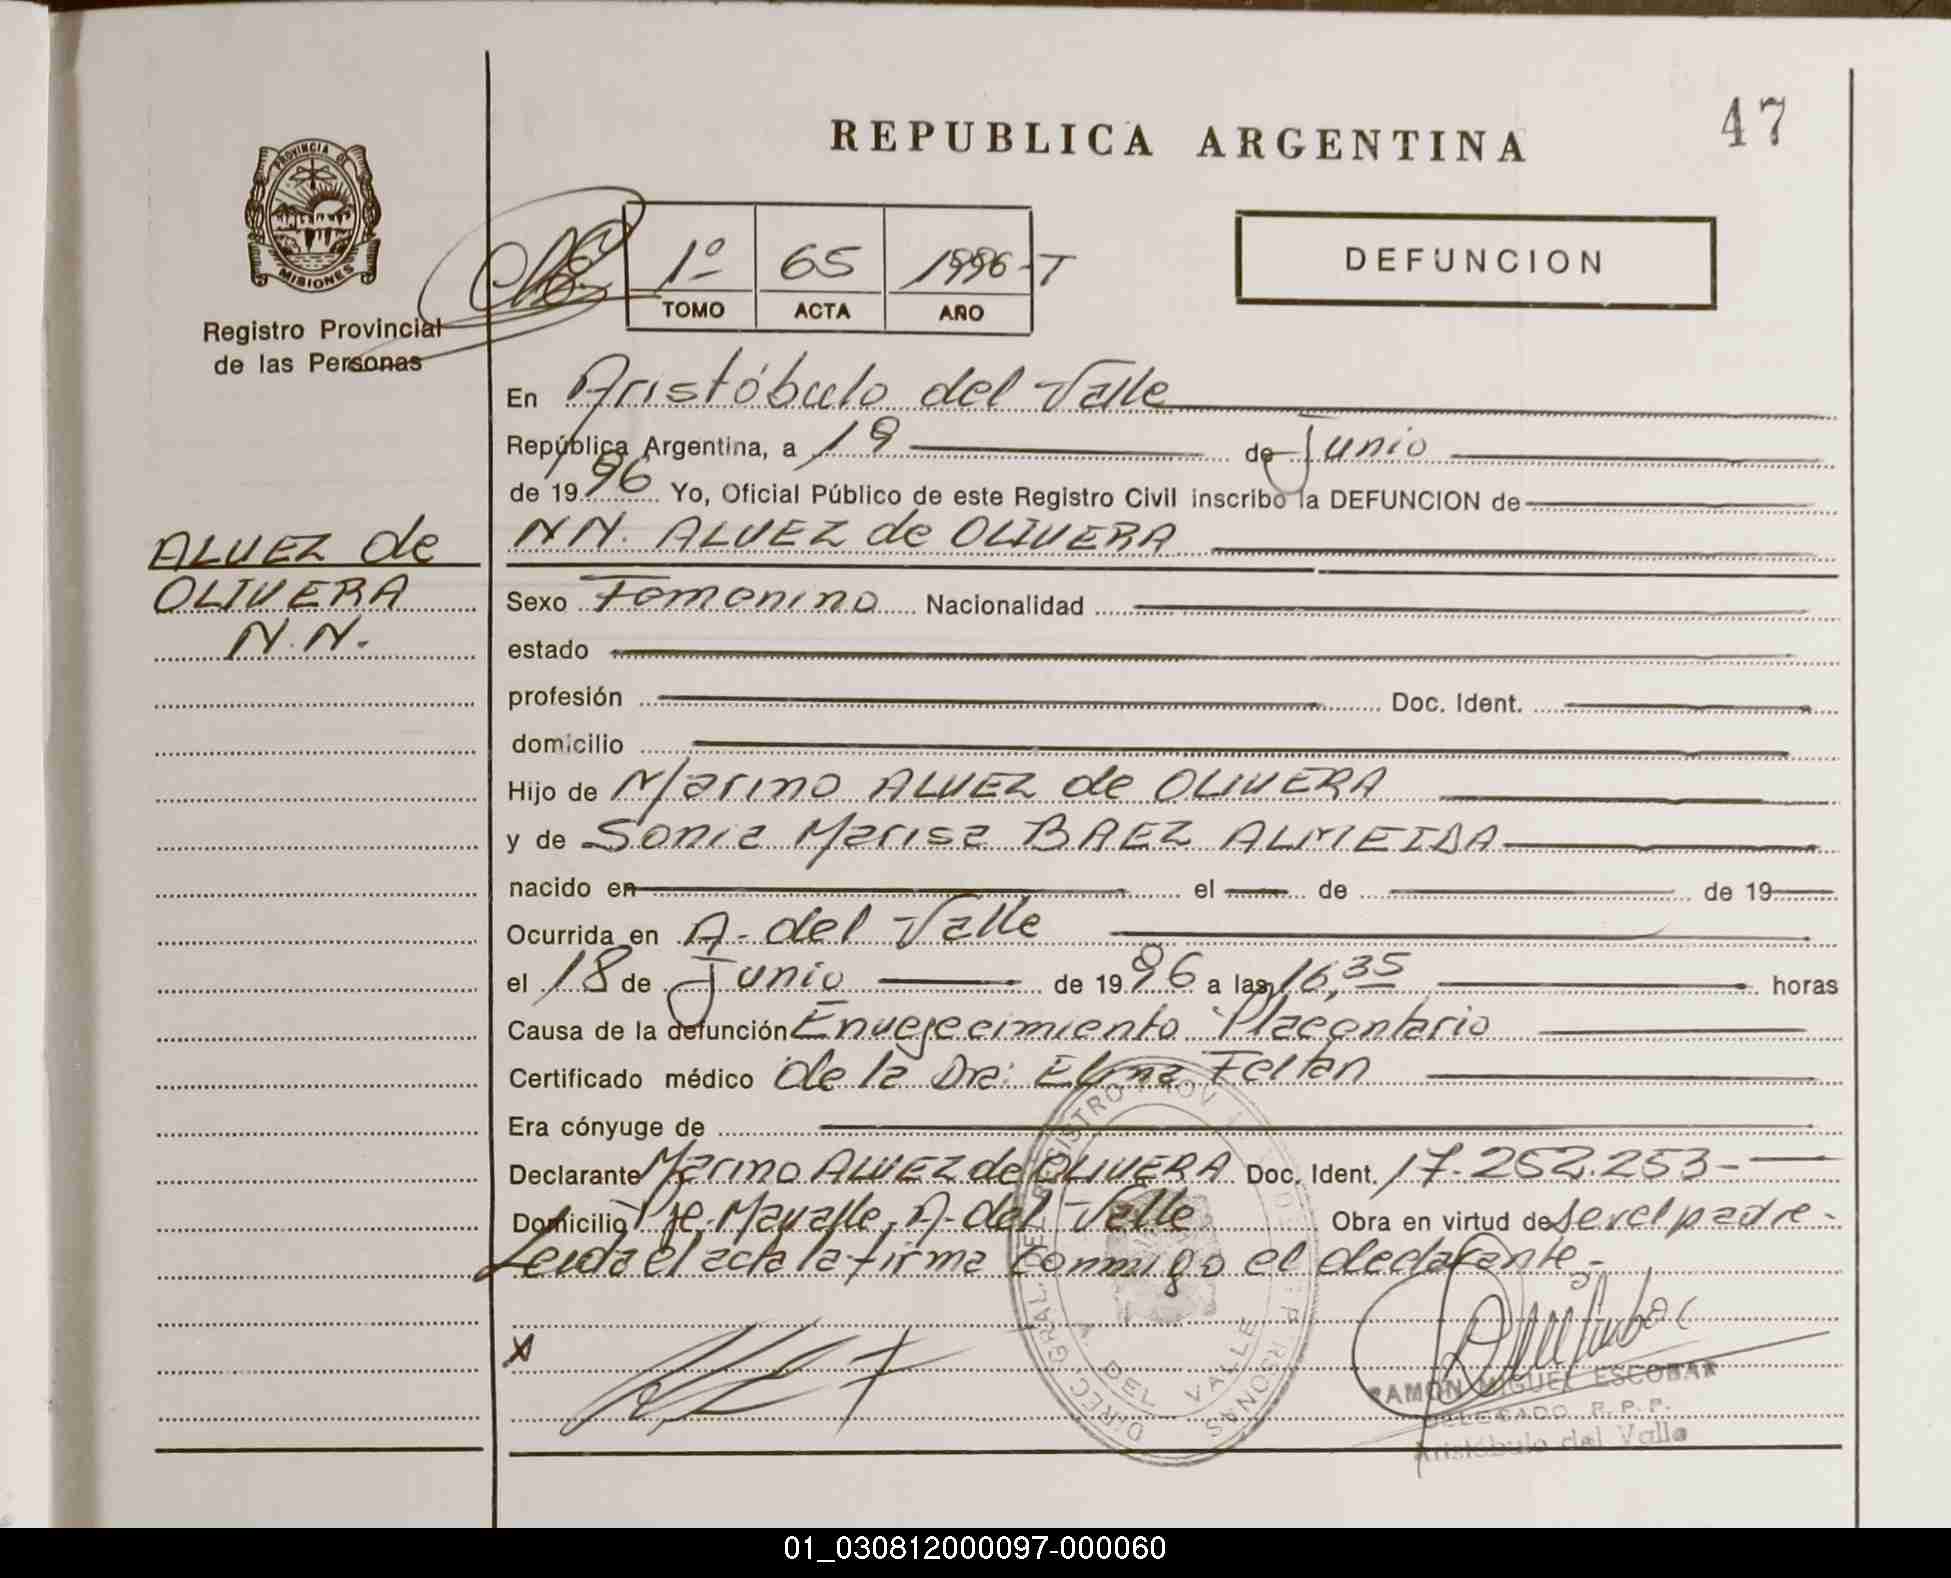 REPUBLICA ARGENTINA
47
PROVINCIA DE
MISIONES
Registro Provincial
de las Personas
1º 65 1996-T
TOMO ACTA AÑO
DEFUNCION
En Aristóbulo del Valle
República Argentina, a 19 de Junio
de 1996 Yo, Oficial Público de este Registro Civil inscribo la DEFUNCION de
NN. ALVEZ de OLIVERA
ALVEZ de
OLIVERA
N.N.
Sexo Femenino Nacionalidad
estado
profesión Doc. Ident.
domicilio
Hijo de Marino ALVEZ de OLIVERA
y de Sonia Marisa BAEZ ALMEIDA
nacido en el de de 19
Ocurrida en A. del Valle
el 18 de Junio de 1996 a las 16,35 horas
Causa de la defunción Envejecimiento Placentario
Certificado médico de la Dra: Feltan
Era cónyuge de
Declarante Marino ALVEZ de OLIVERA Doc. Ident. 17.252.253-
Domicilio Pje. A. del Valle Obra en virtud de ser el padre-
Leida el acta la firma conmigo el declarante.-
X
DIREC. GRAL. DEL REGISTRO PROV. DE PERSONAS
A. DEL VALLE
RAMON MIGUEL ESCOBAR
DELEGADO R.P.P.
Aristóbulo del Valle
01_030812000097-000060